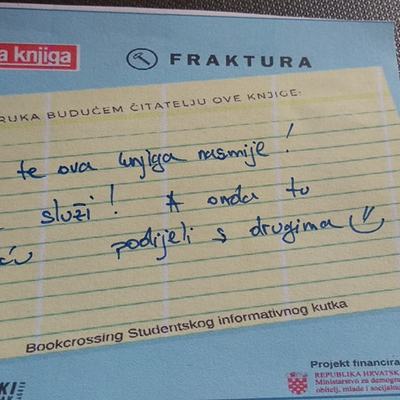 a knjiga
FRAKTURA
RUKA BUDUĆEM ČITATELJU OVE KNJIGE:
te ova knjiga nasmije!
služi! A onda tu
podijeli s drugima
Bookcrossing Studentskog informativnog kutka
Projekt financira
REPUBLIKA HRVATSKA
Ministarstvo za demogra
obitelj, mlade i socijaln
KI